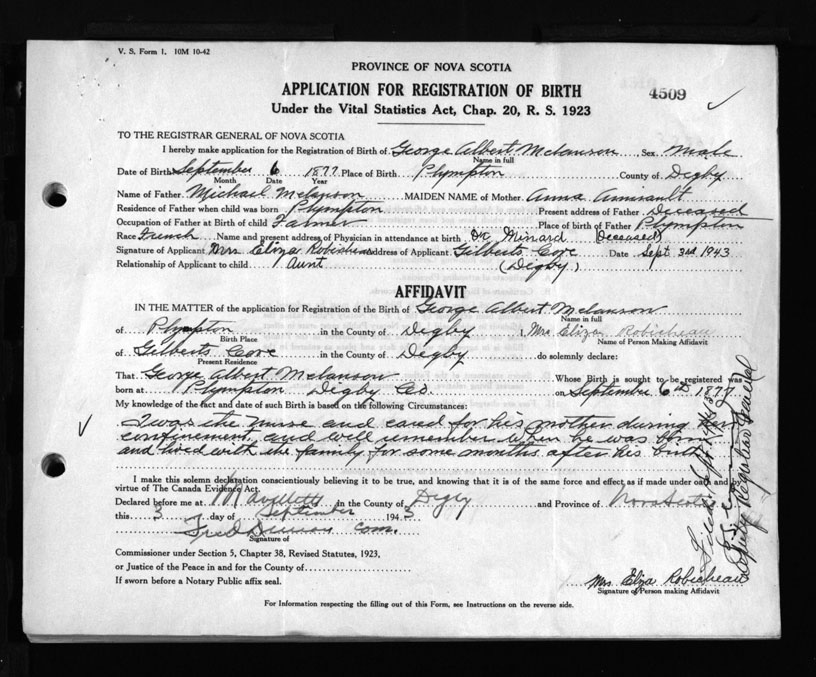 V. S. Form 1. 10M 10-42
PROVINCE OF NOVA SCOTIA
APPLICATION FOR REGISTRATION OF BIRTH
4509
Under the Vital Statistics Act, Chap. 20, R. S. 1923
TO THE REGISTRAR GENERAL OF NOVA SCOTIA
I hereby make application for the Registration of Birth of George Albert Melanson Sex male
Name in full
Date of Birth September 6 1877 Place of Birth Plympton County of Digby
Month Date Year
Name of Father Michael Melanson MAIDEN NAME of Mother Anna Amirault
Residence of Father when child was born Plympton Present address of Father Deceased
Occupation of Father at Birth of child Farmer Place of birth of Father Plympton
Race French Name and present address of Physician in attendance at birth Dr Minard (Deceased)
Signature of Applicant Mrs Eliza Robicheau Address of Applicant Gilberts Cove Date Sept 3rd 1943
Relationship of Applicant to child Aunt (Digby)
AFFIDAVIT
IN THE MATTER of the application for Registration of the Birth of George Albert Melanson
Name in full
of Plympton in the County of Digby I, Mrs Eliza Robicheau
Birth Place Name of Person Making Affidavit
of Gilberts Cove in the County of Digby do solemnly declare:
Present Residence
That George Albert Melanson Whose Birth is sought to be registered was
born at Plympton Digby Co. on September 6th 1877
My knowledge of the fact and date of such Birth is based on the following Circumstances:
I was the nurse and cared for his mother during her
confinement, and well remember when he was born
and lived with the family for some months after his birth
I make this solemn declaration conscientiously believing it to be true, and knowing that it is of the same force and effect as if made under oath and by
virtue of The Canada Evidence Act.
Declared before me at in the County of Digby and Province of Nova Scotia
this 3 day of September 1943
Fred com.
Signature of
Commissioner under Section 5, Chapter 38, Revised Statutes, 1923,
or Justice of the Peace in and for the County of
If sworn before a Notary Public affix seal.
Mrs. Eliza Robicheau
Signature of Person making Affidavit
For Information respecting the filling out of this Form, see Instructions on the reverse side.
Deputy Registrar General